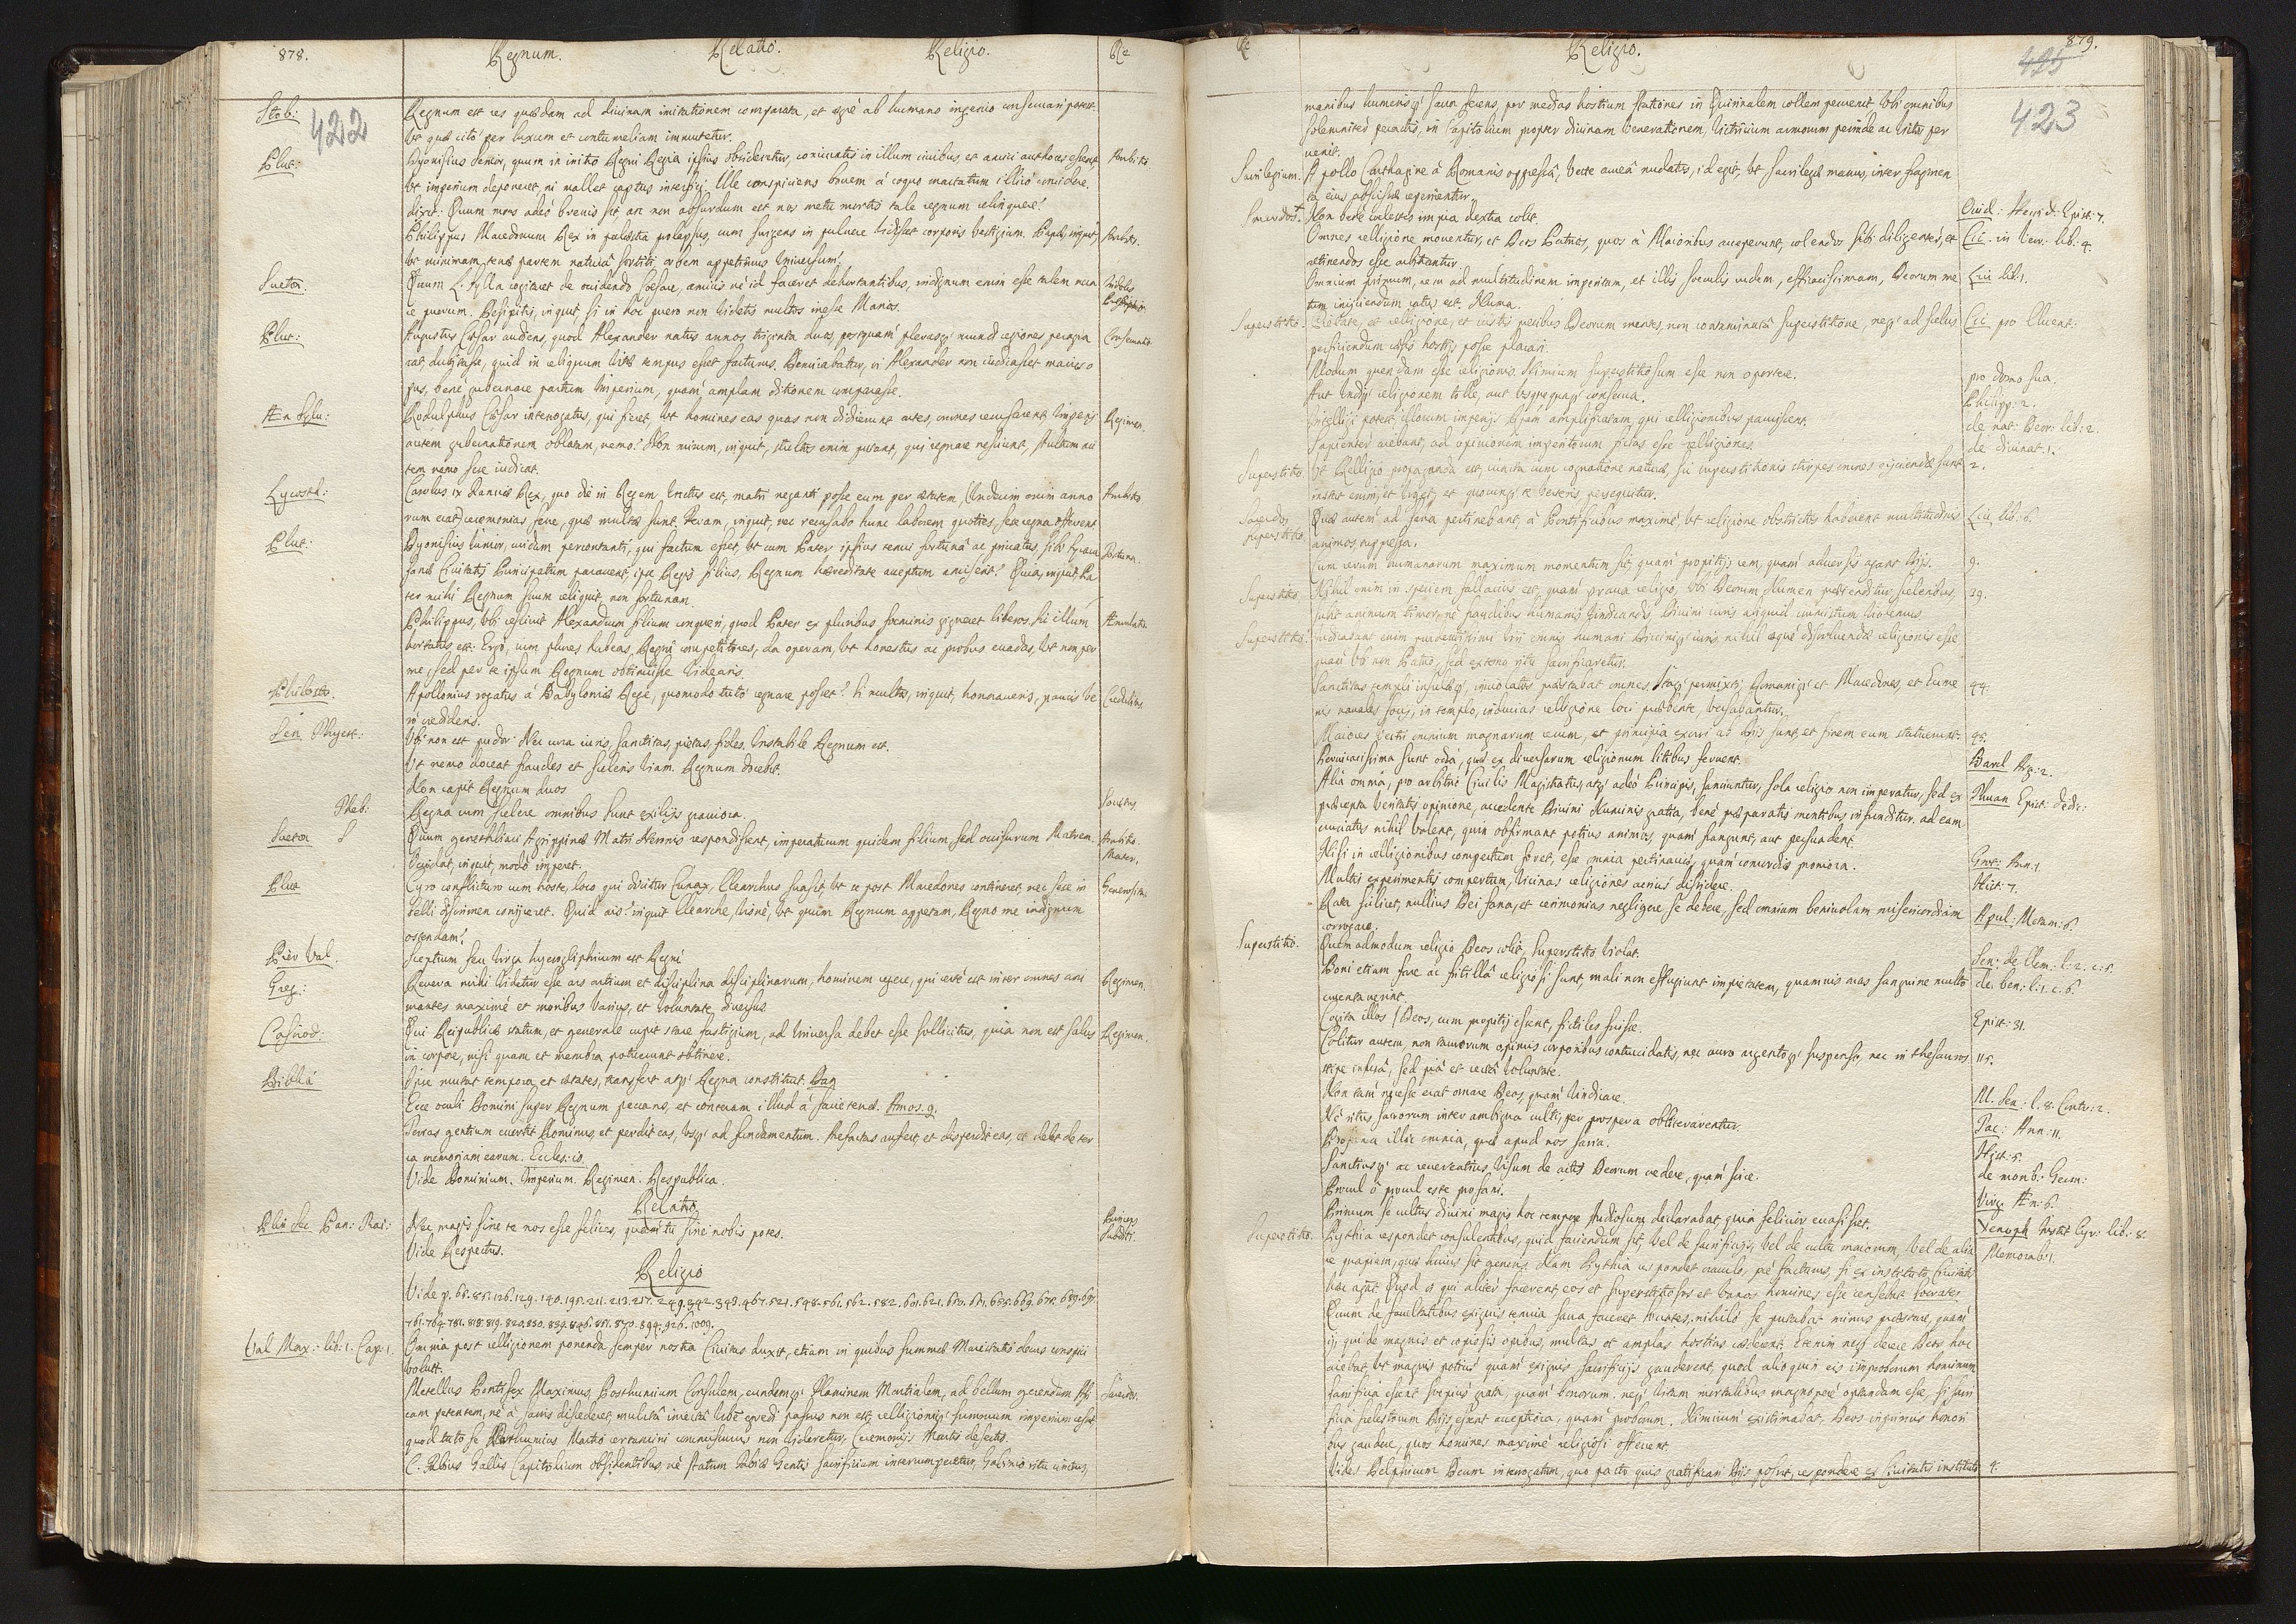 878.
Regnum.
Relatio.
Religio.
Re
422
Stob: Regnum est res quædam ad diuinam imitationem comparata, et ægrè ab humano ingenio conseruari potest.
Vt quæ citò per luxum et contumeliam immutetur.
Plut: Dyonisius Senior, quum in initio Regni Regia ipsius obsideretur, coniuratis in illum ciuibus et amici authores essent, Ambitio.
Vt imperium deponeret, ni mallet captus interfici. Ille conspiciens bouem à coquo mactatum illicò concidere,
dixit: Quum mors adeò breuis sit an non absurdum est nos metu mortis tale regnum relinquere?
Philippus Macedonum Rex in palæstra prolapsus, cum surgens in puluere vidisset corporis vestigium. Papè, inquit, Ambitio.
Vt minimam terræ partem naturâ sortiti, orbem appetimus Vniuersum!
Sueton: Quum L. Sylla cogitaret de occidendo Cæsare, amicis nè id faceret dehortantibus, indignum enim esse talem necare puerum. Desipitis, inquit, si in hoc puero non videtis multos inesse Marios.
Plut: Augustus Cæsar audiens, quod Alexander natus annos triginta duos, postquam plerasq' mundi regiones peragra
rat, dubitasse, quid in reliquum vitæ tempus esset facturus. Demirabatur, si Alexander non iudicasset maius o
pus, benè gubernare partum Imperium, quàm amplam ditionem comparasse.
Æn Sylu: Rodulphus Cæsar interrogatus, qui fieret, Vt homines eas quas non didicerunt artes, omnes recusarent, Imperij Regimen.
autem gubernationem oblatam, nemo? Non mirum, inquit, stultos enim putant, qui regnare nesciunt, stultum au
tem nemo sese iudicat.
Lycosth: Carolus ix Franciæ Rex, quo die in Regem Vnctus est, matri neganti posse eum per ætatem, (Vndecim enim anno Ambitio
rum erat) ceremonias, ferre, quæ multæ sunt. Feram, inquit, nec recusabo hunc laborem quoties, sese regna offerent
Plut: Dyonisius Iunior, cuidam percontanti, qui factum esset, Vt cum Pater ipsius tenui fortunâ ac priuatus, sibi Syracu Fortuna.
sanæ Ciuitatis Principatum parauerit, ipse Regis filius, Regnum hæreditate acceptum amiserit? Quia, inquit, Pa
ter mihi Regnum suum reliquit non fortunam.
Philippus, Vbi resciuit Alexandrum filium conqueri, quod Pater ex pluribus foeminis gigneret liberos. sic illum Æmulatio
hortatus est: Ergo, cum plures habeas, Regni competitores, da operam, Vt honestus ac probus euadas, Vt non per
me, sed per te ipsum Regnum obtinuisse Videaris.
Philostr. Apollonius rogatus à Babyloniæ Rege, quomodo tutò regnare posset? Si multos, inquit, honoraueris, paucis Ve Credulitas.
rò credideris.
Sen Thyest: Vbi non est pudor Nec cura iuris, sanctitas, pietas, fides. Instabile Regnum est.
Vt nemo doceat fraudes et sceleris Viam. Regnum docebit.
Non capit Regnum duos
Theb: Regna cum scelere omnibus sunt exilijs grauiora.
Sueton Quum genethliaci Agrippinæ Matri Neronis respondissent, imperaturum quidem filium, sed occisurum Matrem. Ambitio. Mater.
Occidat, inquit, modò imperet.
Plut Cyro conflicturo cum hoste, loco qui dicitur Cunax, Clearchus suasit Vt se post Macedones contineret, nec sese in Generositas.
belli discrimen conijceret. Quid ais? inquit Clearche, Visne, Vt quùm Regnum appetam, Regno me indignum
ostendam?
Pier Val. Sceptrum seu Virga hyeroglyphicum est Regni
Greg: Reuera mihi Videtur esse ars artium et disciplina disciplinarum, hominem regere, qui certè est inter omnes ani Regimen.
mantes maximè et moribus Varius, et Voluntate diuersus
Casiod: Qui Reipublicæ statum, et generale cupit stare fastigium, ad Vniuersa debet esse sollicitus, quia non est salus Regimen.
in corpore, nisi quam et membra potuerunt obtinere.
Biblia Ipse mutat tempora et ætates, transfert atq' Regna constituit. Dan
Ecce oculi Domini super Regnum peccans, et conteram illud à facie terræ. Amos. 9.
Terras gentium euertit Dominus, et perdit eas, Vsq' ad fundamentum. Arefactas aufert et disperdit eas, et delet de ter
ra memoriam earum. Eccles: 10.
Vide Dominium. Imperium. Regimen. Respublica.
Relatio
Plin Sec Pan: Trai: Nec magis sine te nos esse felices, quam tu sine nobis potes. Princeps Subditi.
Vide Respectus.
Religio
761. 764. 781. 818. 819. 820. 830. 839. 846. 851. 870. 894. 926. 1009.
Val Max: lib: 1. Cap: 1. Omnia post relligionem ponenda semper nostra Ciuitas duxit, etiam in quibus summæ Maiestatis decus conspici
Voluit.
Metellus Pontifex Maximus, Posthumium Consulem, eundemq' Flaminem Martialem, ad bellum gerendum Afri Sacerdos.
cam petentem, nè à sacris discederet, mulctâ indictâ Vrbe egredi passus non est, relligioniq' summum imperium cessit,
quod tutò se Posthumius Martio certamini commissurus non Videretur, Ceremonijs Martis desertis.
C. Fabius Gallis Capitolium obsidentibus, nè statum Fabiæ Gentis sacrificium interrumperetur, Gabinio ritu cinctus,
Re
Religio.
879.
423
manibus humerisq' sacra ferens, per medias hostium stationes in Quirinalem collem peruenit. Vbi omnibus
solemniter peractis, in Capitolium propter diuinam Venerationem, Victricium armorum perinde ac Victor per
uenit.
Sacrilegium. Apollo Carthagine à Romanis oppressâ, Veste aureâ nudatus, id egit, Vt sacrilegæ manus, inter fragmen
ta eius abscissæ reperirentur.
Sacerdos. Non benè coelestes impia dextra colit. Ouid: Heroid: Epist: 7.
Omnes relligione mouentur, et Deos Patrios, quos à Maioribus acceperunt, colendos sibi diligenter, et Cic. in Verr: lib: 4.
retinendos esse arbitrantur
Omnium primum, rem ad multitudinem imperitam, et illis sæculis rudem, efficacissimam, Deorum me Liu lib: 1.
tum iniiciendum ratus est. Numa.
Superstitio. Pietate, et relligione, et iustis precibus Deorum mentes, non contaminatâ superstitione, neq' ad scelus Cic pro Cluent:
perficiendum cæsis hostijs posse placari.
Modum quendam esse religionis. Nimium superstitiosum esse non oportere. pro domo sua.
Aut Vndiq' religionem tolle, aut Vsquequaq' conserua. Philipp: 2.
Intelligi potest, illorum imperijs Rem amplificatam, qui relligionibus paruissent. de nat: Deor: lib: 2.
Sapienter aiebant, ad opinionem imperitorum fictas esse relligiones. de diuinat: 1.
Superstitio. Vt Relligio propaganda est, iuncta cum cognitione naturæ, sic superstitionis stirpes omnes eijciendæ sunt 2.
instat enim, et Vrget, et quocunq' te Verteris persequitur.
Sacerdos Superstitio. Quæ autem ad sacra pertinebant, à Pontificibus maximè Vt religione obstrictos haberent multitudinis Liu lib: 6.
animos, suppressa.
Cum rerum humanarum maximum momentum sit, quàm propitijs rem, quàm aduersis agant Dijs. 9.
Superstitio Nihil enim in speciem fallacius est, quàm praua religio, Vbi Deorum Numen prætenditur sceleribus, 39.
subit animum timor, nè fraudibus humanis Vindicandis Diuini iuris aliquid immixtum Violemus.
Superstitio. Iudicabant enim prudentissimi Viri omnis humani Diuiniq' iuris nihil æquè dissoluendæ religionis esse
quàm Vbi non Patrio, sed externo ritu sacrificaretur.
Sanctitas templi insulæq', inuiolatos præstabat omnes. Itaq' permixti Romaniq' et Macedones, et Eume 44.
nis nauales socij, in templo, inducias relligione loci præbente, Versabantur.
Maiores Vestri omnium magnarum rerum, et principia exorsi ab Dijs sunt, et finem eum statuerunt. 45.
Peruicacissima sunt odia, quæ ex diuersarum religionum litibus feruent. Barcl Arg: 2.
Alia omnia, pro arbitrio Ciuilis Magistratus, atq' adeò Principis, sanciuntur, sola religio non imperatur, sed ex Thuan Epist: dedic:
præcepta Veritatis opinione, accedente Diuini Numinis gratia, benè præparatis mentibus infunditur. ad eam
cruciatus nihil Valent, quin obfirmant potius animos, quàm frangunt, aut persuadent.
Nisi in relligionibus compertum foret, esse omnia pertinaciæ, quàm concordiæ proniora. Grot: Ann: 1
Multis experimentis compertum, Vicinas religiones acriùs dissidere. Hist: 7.
Rata scilicet, nullius Dei fana, et cærimonias negligere se debere, sed omnium beniuolam misericordiam Apul: Metam: 6.
corrogare.
Superstitio. Quemadmodum religio Deos colit, superstitio Violat. Sen: de Clem: l: 2. c: 5.
Boni etiam farre ac fitillâ religiosi sunt, mali non effugiunt impietatem, quamuis aras sanguine multo de ben: l: 1. c: 6
cruentauerint.
Cogita illos (Deos, cum propitij essent, fictiles fuisse. Epist: 31.
Colitur autem, non taurorum opimis corporibus contrucidatis, nec auro argentoq' suspenso, nec in thesauros 115.
stipe infusâ, sed piâ et rectâ Voluntate.
Non tam necesse erat ornare Deos, quàm Vindicare. M. Sen: l. 8. Contr: 2.
Nè ritus sacrorum inter ambigua culti, per prospera obliterarentur. Tac: Ann: 11.
Profana illic omnia, quæ apud nos sacra. Hist: 5.
Sanctiusq' ac reuerentius Visum de actis Deorum credere, quàm scire. de morib: Germ:
Procul ô procul este profani. Virg Æn: 6.
Primum se cultus diuini magis hoc tempore studiosum declarabat, quia felicior euasisset. Xenoph Instit Cyr: lib: 8.
Superstitio. Pythia respondet consulentibus, quid faciendum sit, Vel de sacrificijs, Vel de cultu maiorum, Vel de alia Memorab: 1.
re quapiam, quæ huius sit generis. Nam Pythia respondet oraculo, piè facturos, si ex instituto Ciuitatis
hæc agat. Quod si qui aliter facerent, eos et superstitiosos et Vanos homines esse censebat Socrates
Quum de facultatibus exiguis tenuia sacra faceret Mortes, nihilo se putabat minus præstare, quàm
ij, qui de magnis et copiosis opibus, multas et amplas hostias cæderent. Etenim neq' decere Deos hoc
aiebat, Vt magnis potius quàm exiguis sacrificijs gauderent, quod alioquin eis improborum hominum
sacrificia essent sæpius grata, quàm bonorum. neq' Vitam mortalibus magnoperè optandam esse, si sacri
ficia scelestorum Dijs essent acceptiora, quàm proborum. Nimirum existimabat, Deos in primis honori
bus gaudere, quos homines maximè religiosi offerrent
Vides Delphicum Deum interrogatum, quo pacto quis gratificari Dijs possit, respondere ex Ciuitatis instituto 4.